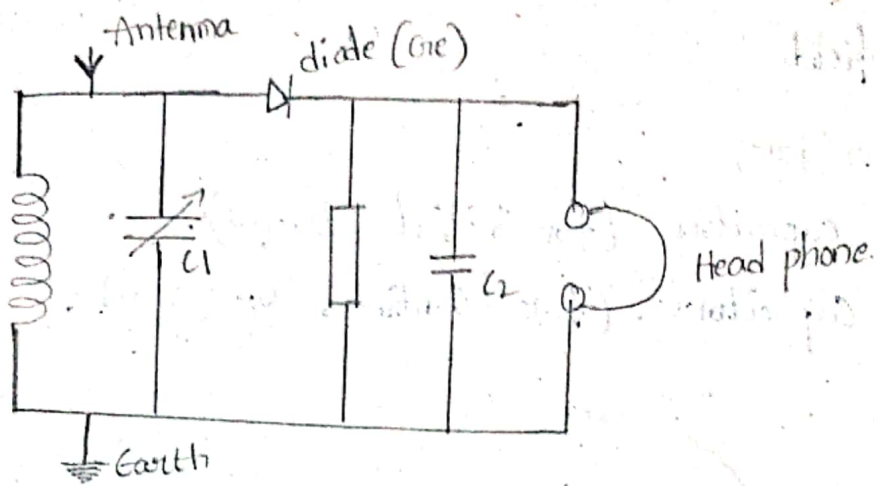 Antenna
diode (Ge)
C1
C2
Head phone.
Earth